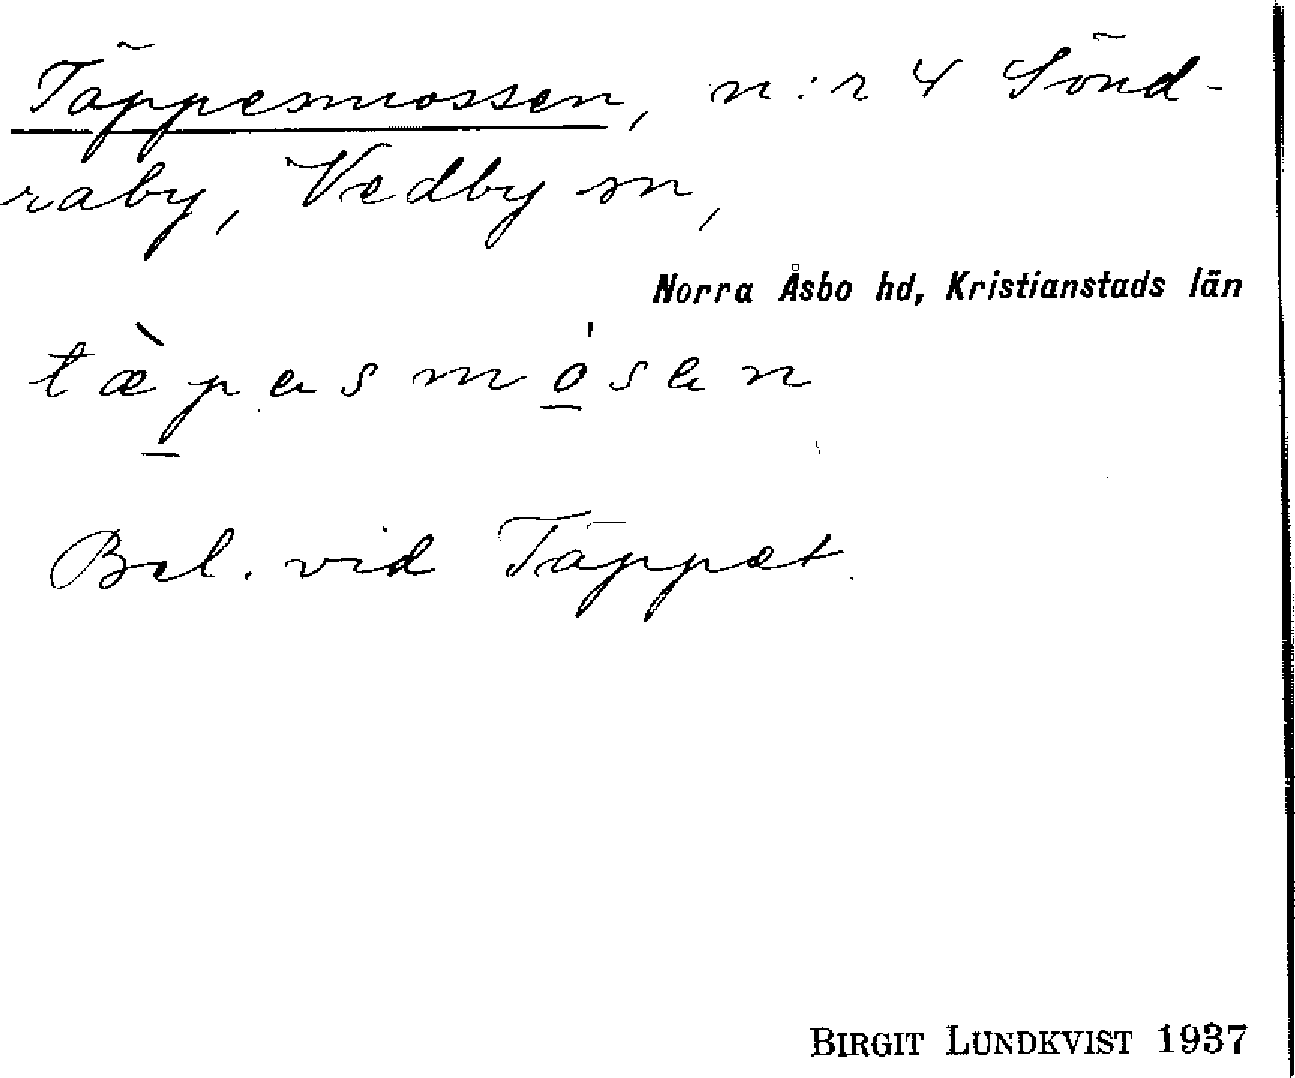 Täppesmossen, n:r 4 Sönd-
raby, Vedby sn,
Norra Åsbo hd, Kristianstads län
tæ̀pəsmósən
Bel. vid Täppet.
BIRGIT LUNDKVIST 1937